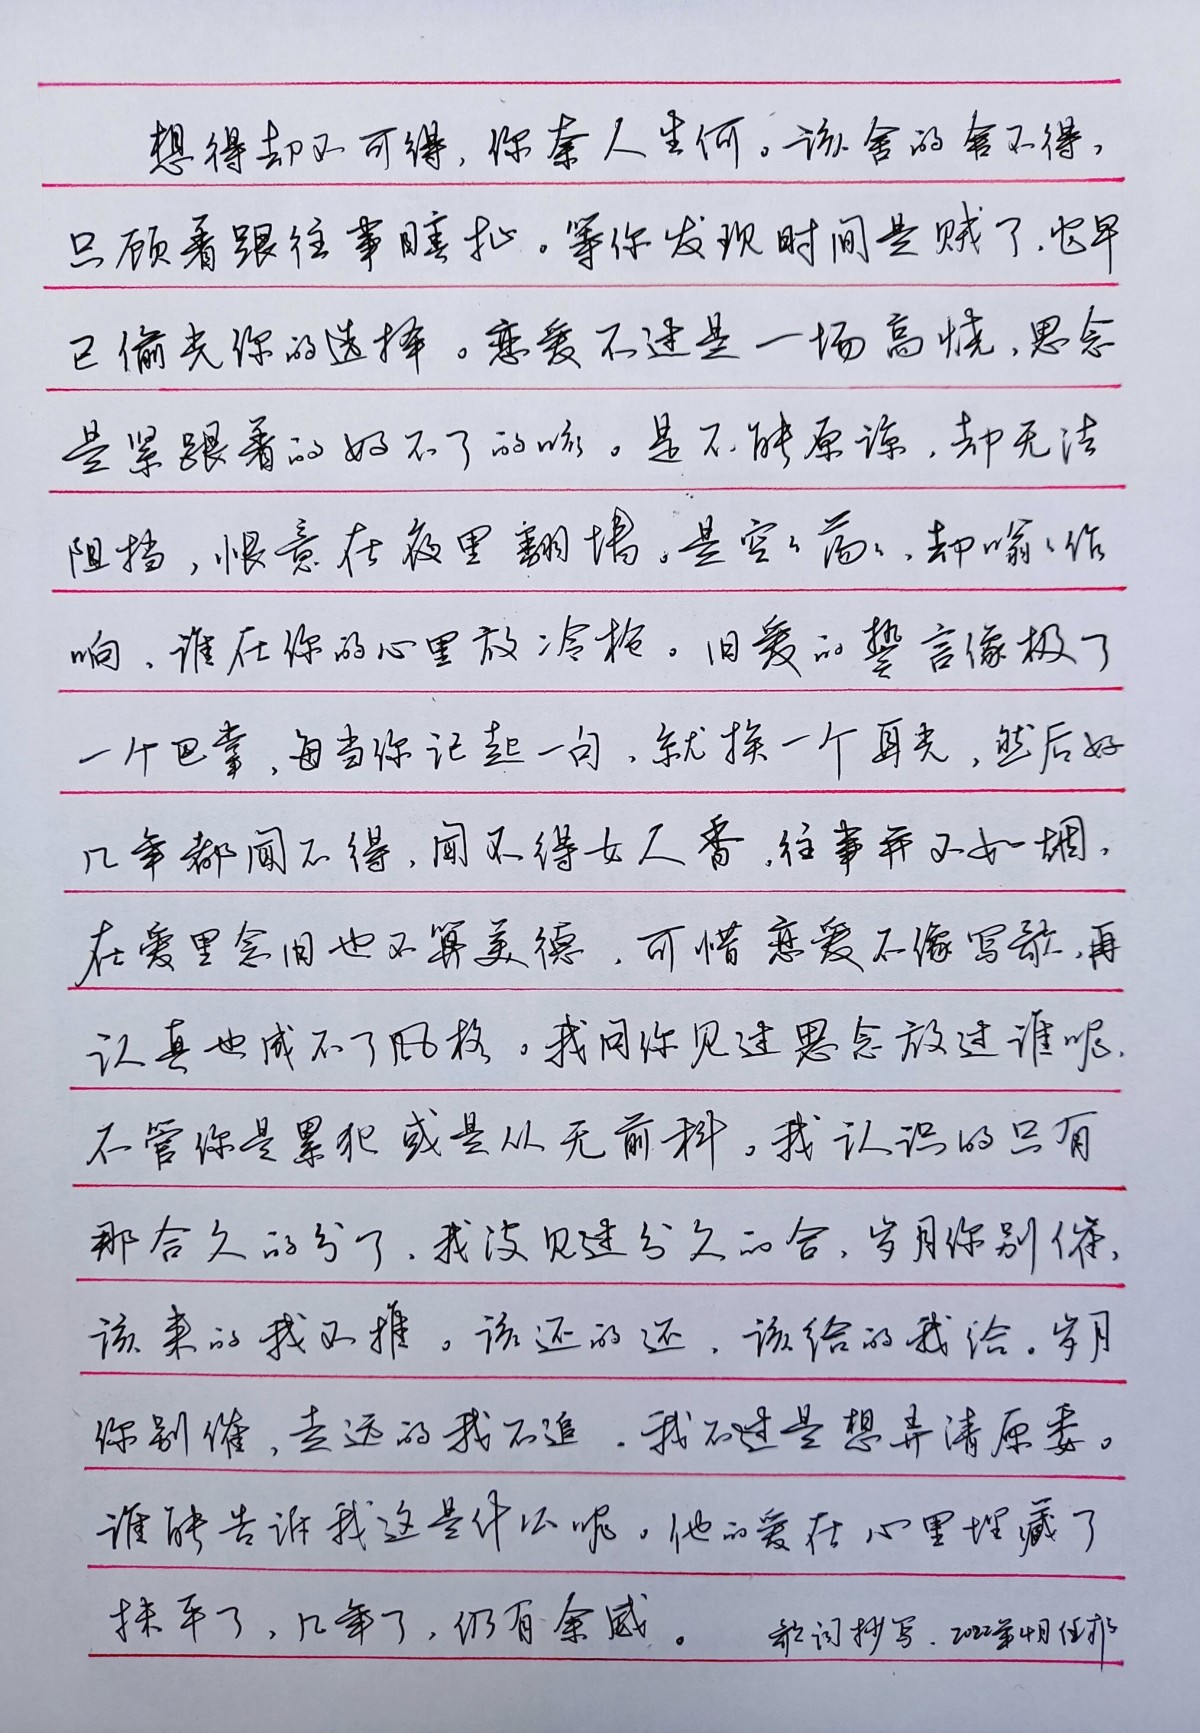 想得却不可得，你奈人生何。该舍的舍不得，
只顾着跟往事瞎扯。等你发现时间是贼了，它早
已偷光你的选择。恋爱不过是一场高烧，思念
是紧跟着的好不了的咳。是不能原谅，却无法
阻挡，恨意在夜里翻墙。是空々荡々，却嗡々作
响，谁在你的心里放冷枪。旧爱的誓言像极了
一个巴掌，每当你记起一句，就挨一个耳光，然后好
几年都闻不得，闻不得女人香，往事并不如烟，
在爱里念旧也不算美德，可惜恋爱不像写歌，再
认真也成不了风格。我问你见过思念放过谁呢，
不管你是累犯或是从无前科。我认识的只有
那合久的分了，我没见过分久的合，岁月你别催，
该来的我不推。该还的还，该给的我给。岁月
你别催，走远的我不追，我不过是想弄清原委。
谁能告诉我这是什么呢。他的爱在心里埋藏了
抹平了，几年了，仍有余威。 歌词抄写，2022年4月任